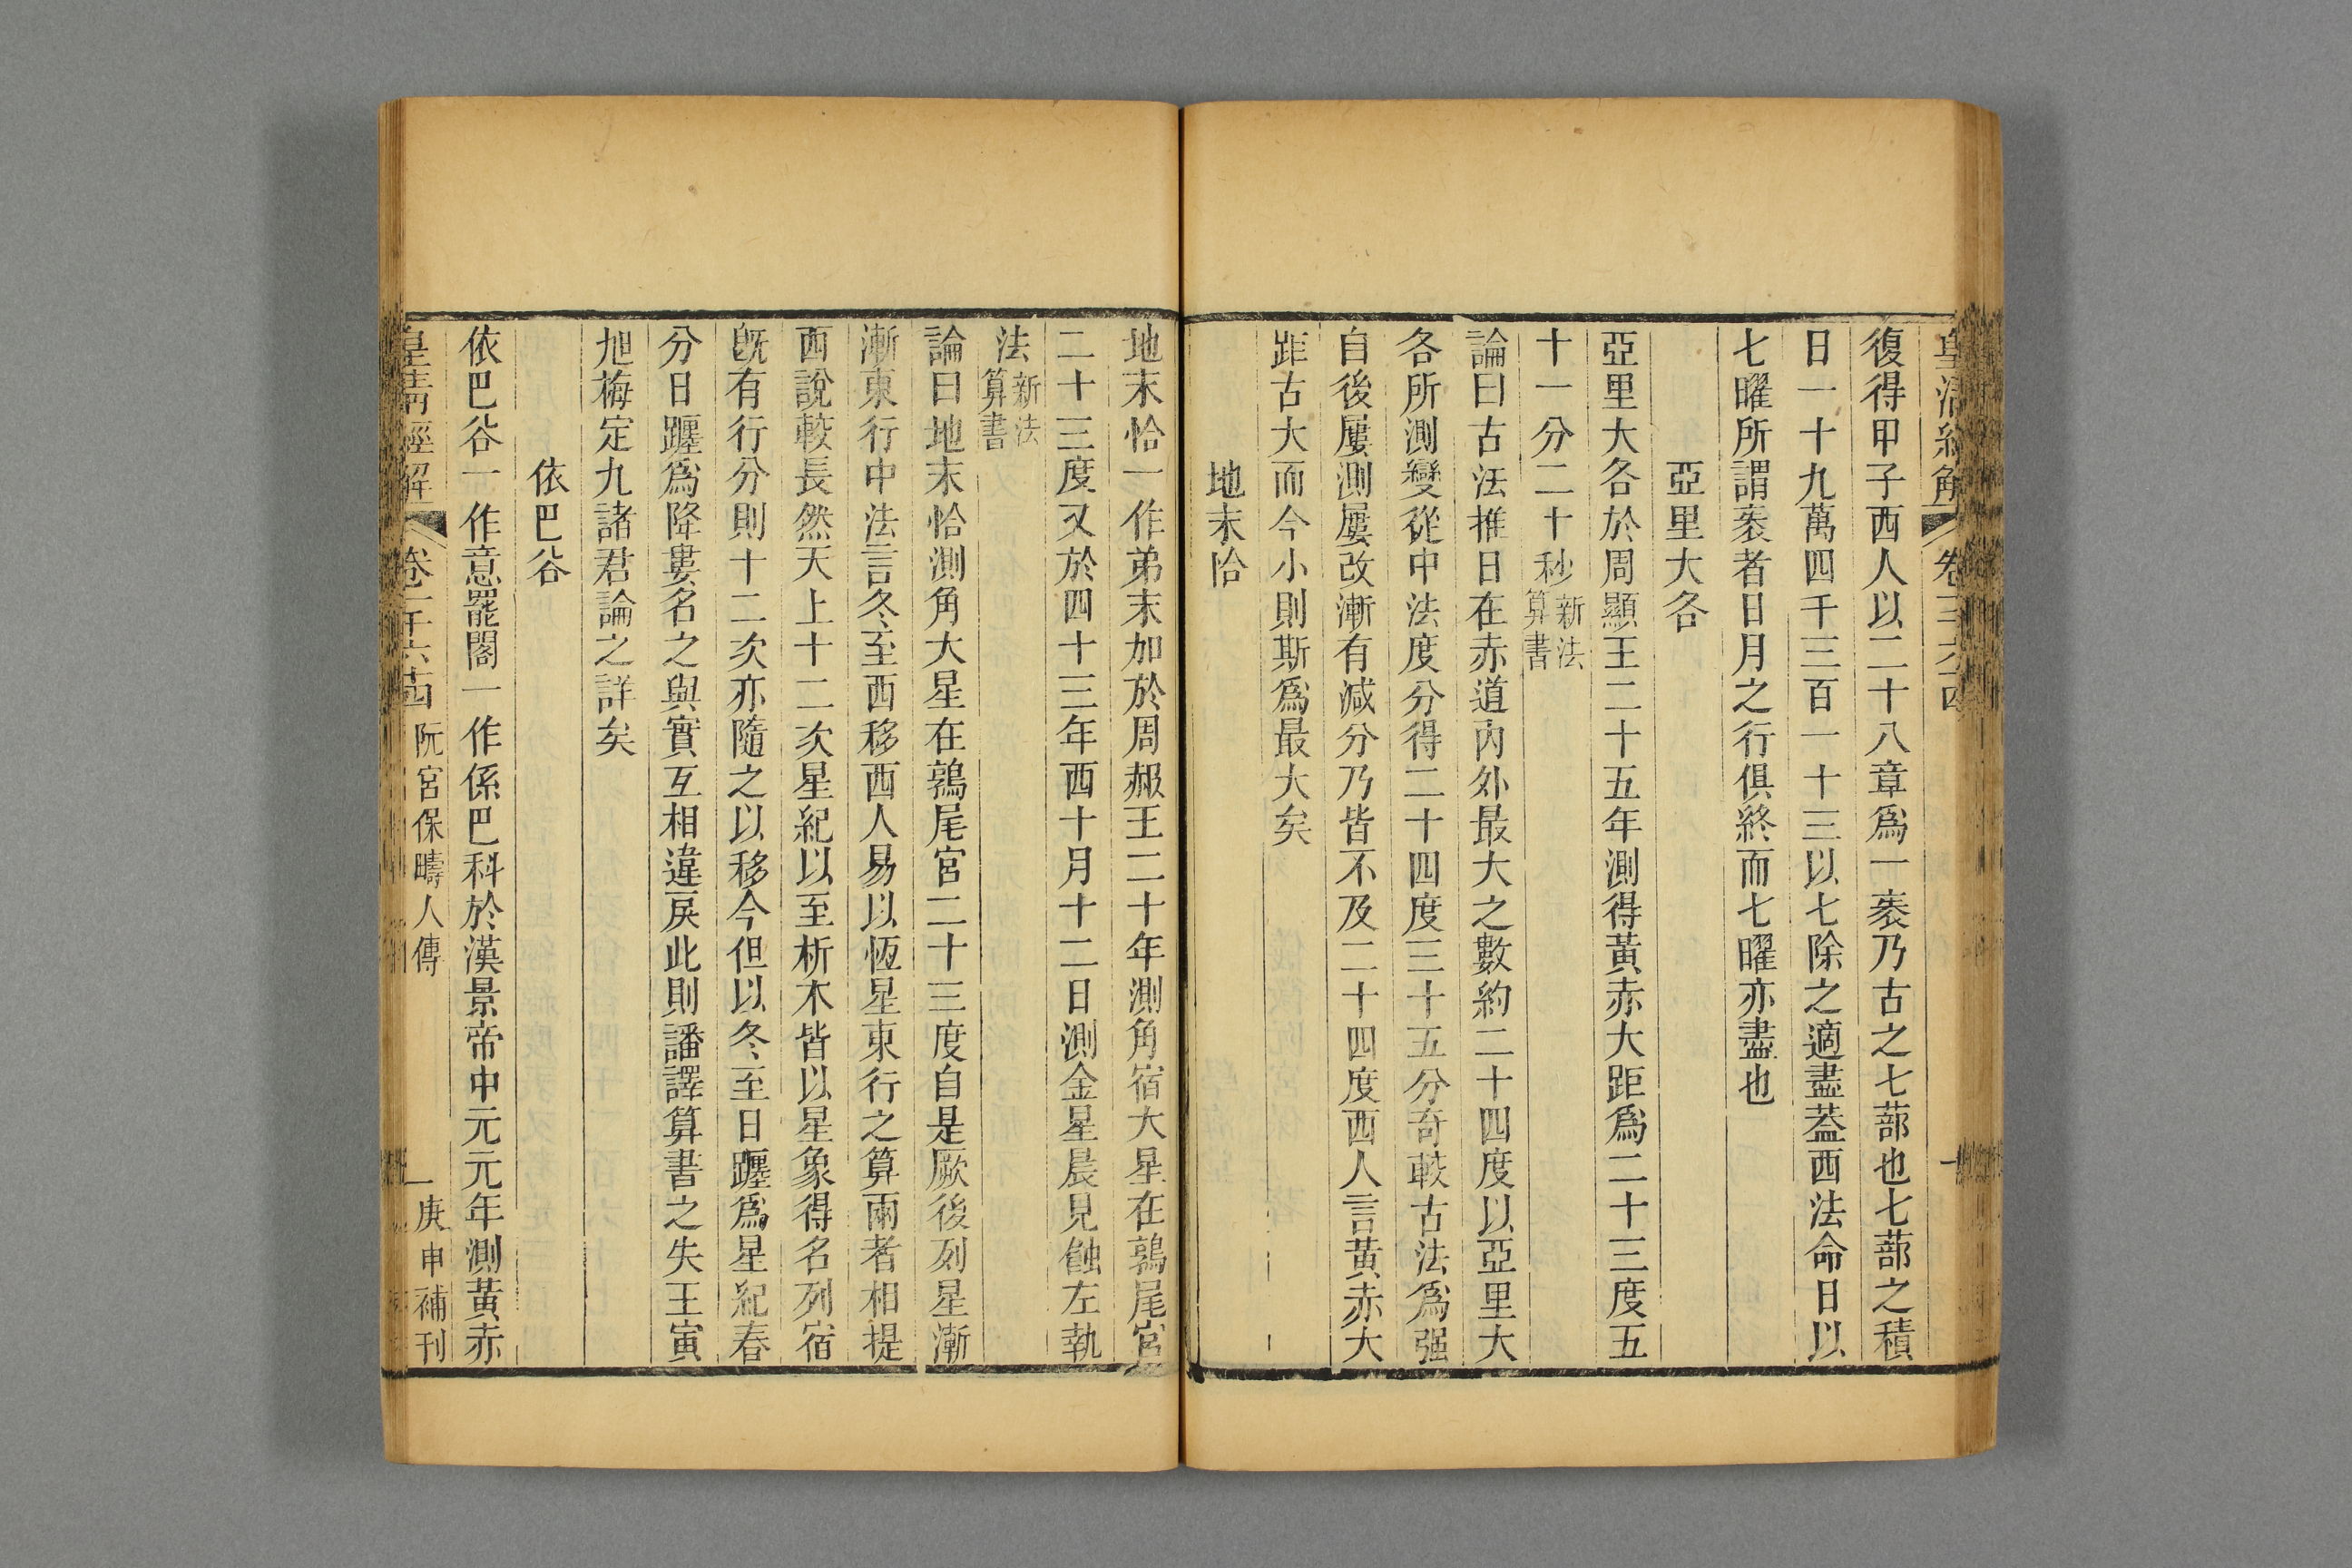 復得甲子西人以二十八章爲一袠乃古之七蔀也七蔀之積
日一十九萬四千三百一十三以七除之適盡葢西法命日以
七曜所謂袠者日月之行俱終而七曜亦盡也
亞里大各
亞里大各於周顯王二十五年測得黃赤大距爲二十三度五
十一分二十秒新法算書
論曰古法推日在赤道內外最大之數約二十四度以亞里大
各所測變從中法度分得二十四度三十五分奇較古法爲强
自後屢測屢改漸有減分乃皆不及二十四度西人言黃赤大
距古大而今小則斯爲最大矣
地末恰
地末恰一作弟末加於周赧王二十年測角宿大星在鶉尾宮
二十三度又於四十三年西十月十二日測金星晨見蝕左執
法新法算書
論曰地末恰測角大星在鶉尾宮二十三度自是厥後列星漸
漸東行中法言冬至西移西人易以恆星東行之算兩者相提
西說較長然天上十二次星紀以至析木皆以星象得名列宿
旣有行分則十二次亦隨之以移今但以冬至日躔爲星紀春
分日躔爲降婁名之與實互相違戾此則譒譯算書之失王寅
旭梅定九諸君論之詳矣
依巴谷
依巴谷一作意罷閣一作係巴科於漢景帝中元元年測黃赤
皇清經解 卷一千六十四 阮宮保疇人傳 一 庚申補刊